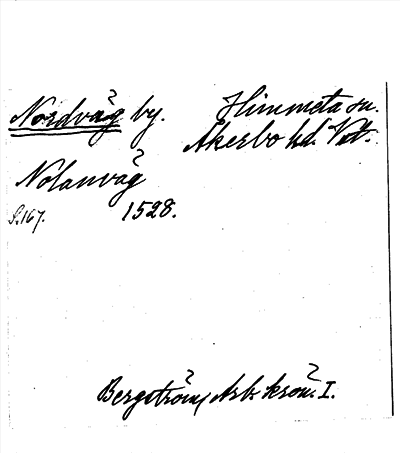 Nordväg by. Himmeta sn.
Åkerbo hd. Vstm.
Nolanväg
S. 167. 1528.
Bergström, Arb. krön. I.